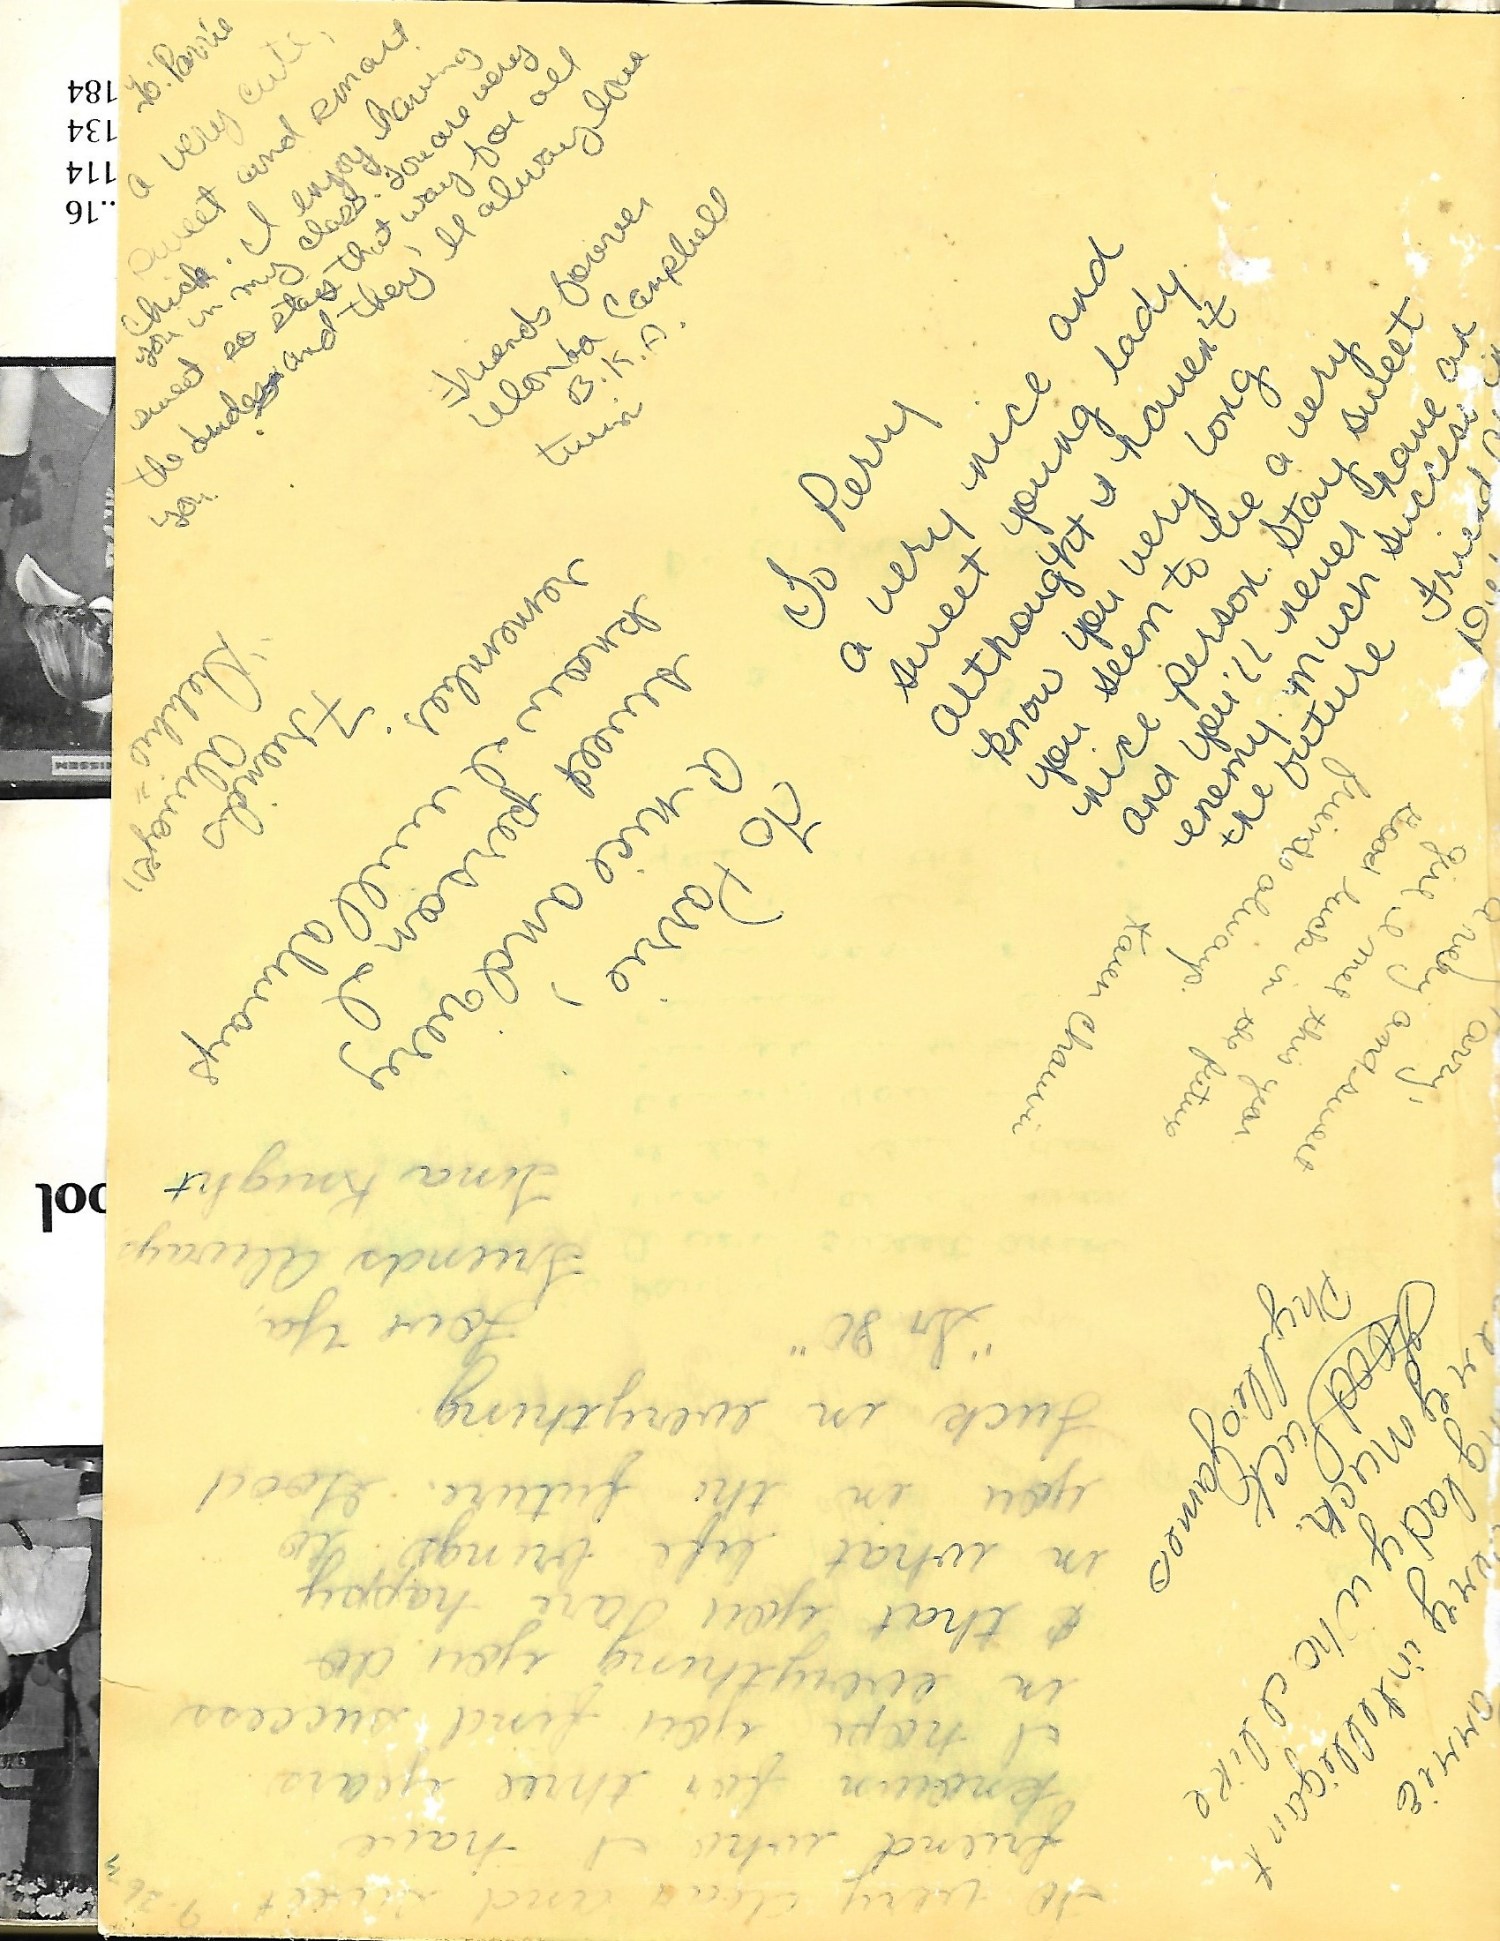 184
134
114
..16
To: Parrie
a very cute,
sweet and smart
chick. I enjoy having
you in my class. You are very
sweet so stay that way for all
the dudes and they'll always love
you.
Friends forever
Campbell
B.K.A.
twin
To Perry
a very nice and
sweet young lady
althought I haven't
know you very long
you seem to be a very
nice person. Stay sweet
and you'll never have an
enemy. much success in
the outure
Friend
To Parrie,
a nice and very
sweet person I
know I will always
remember
Friends
Always,
"Debbie"
Parry,
a sweet
girl I met this year
Good luck in the future
friends always.
Karen
A very dear and sweet
friend who I have
known for three years
I hope you find success
in everything you do
& that you are happy
in what life brings to
you in the future. Good
Luck in everything
"In 80"
Love Ya,
Friends Always
Tina Knight
very intelligant
young lady who I like
very much.
Good Luck
Phyllis James
ool